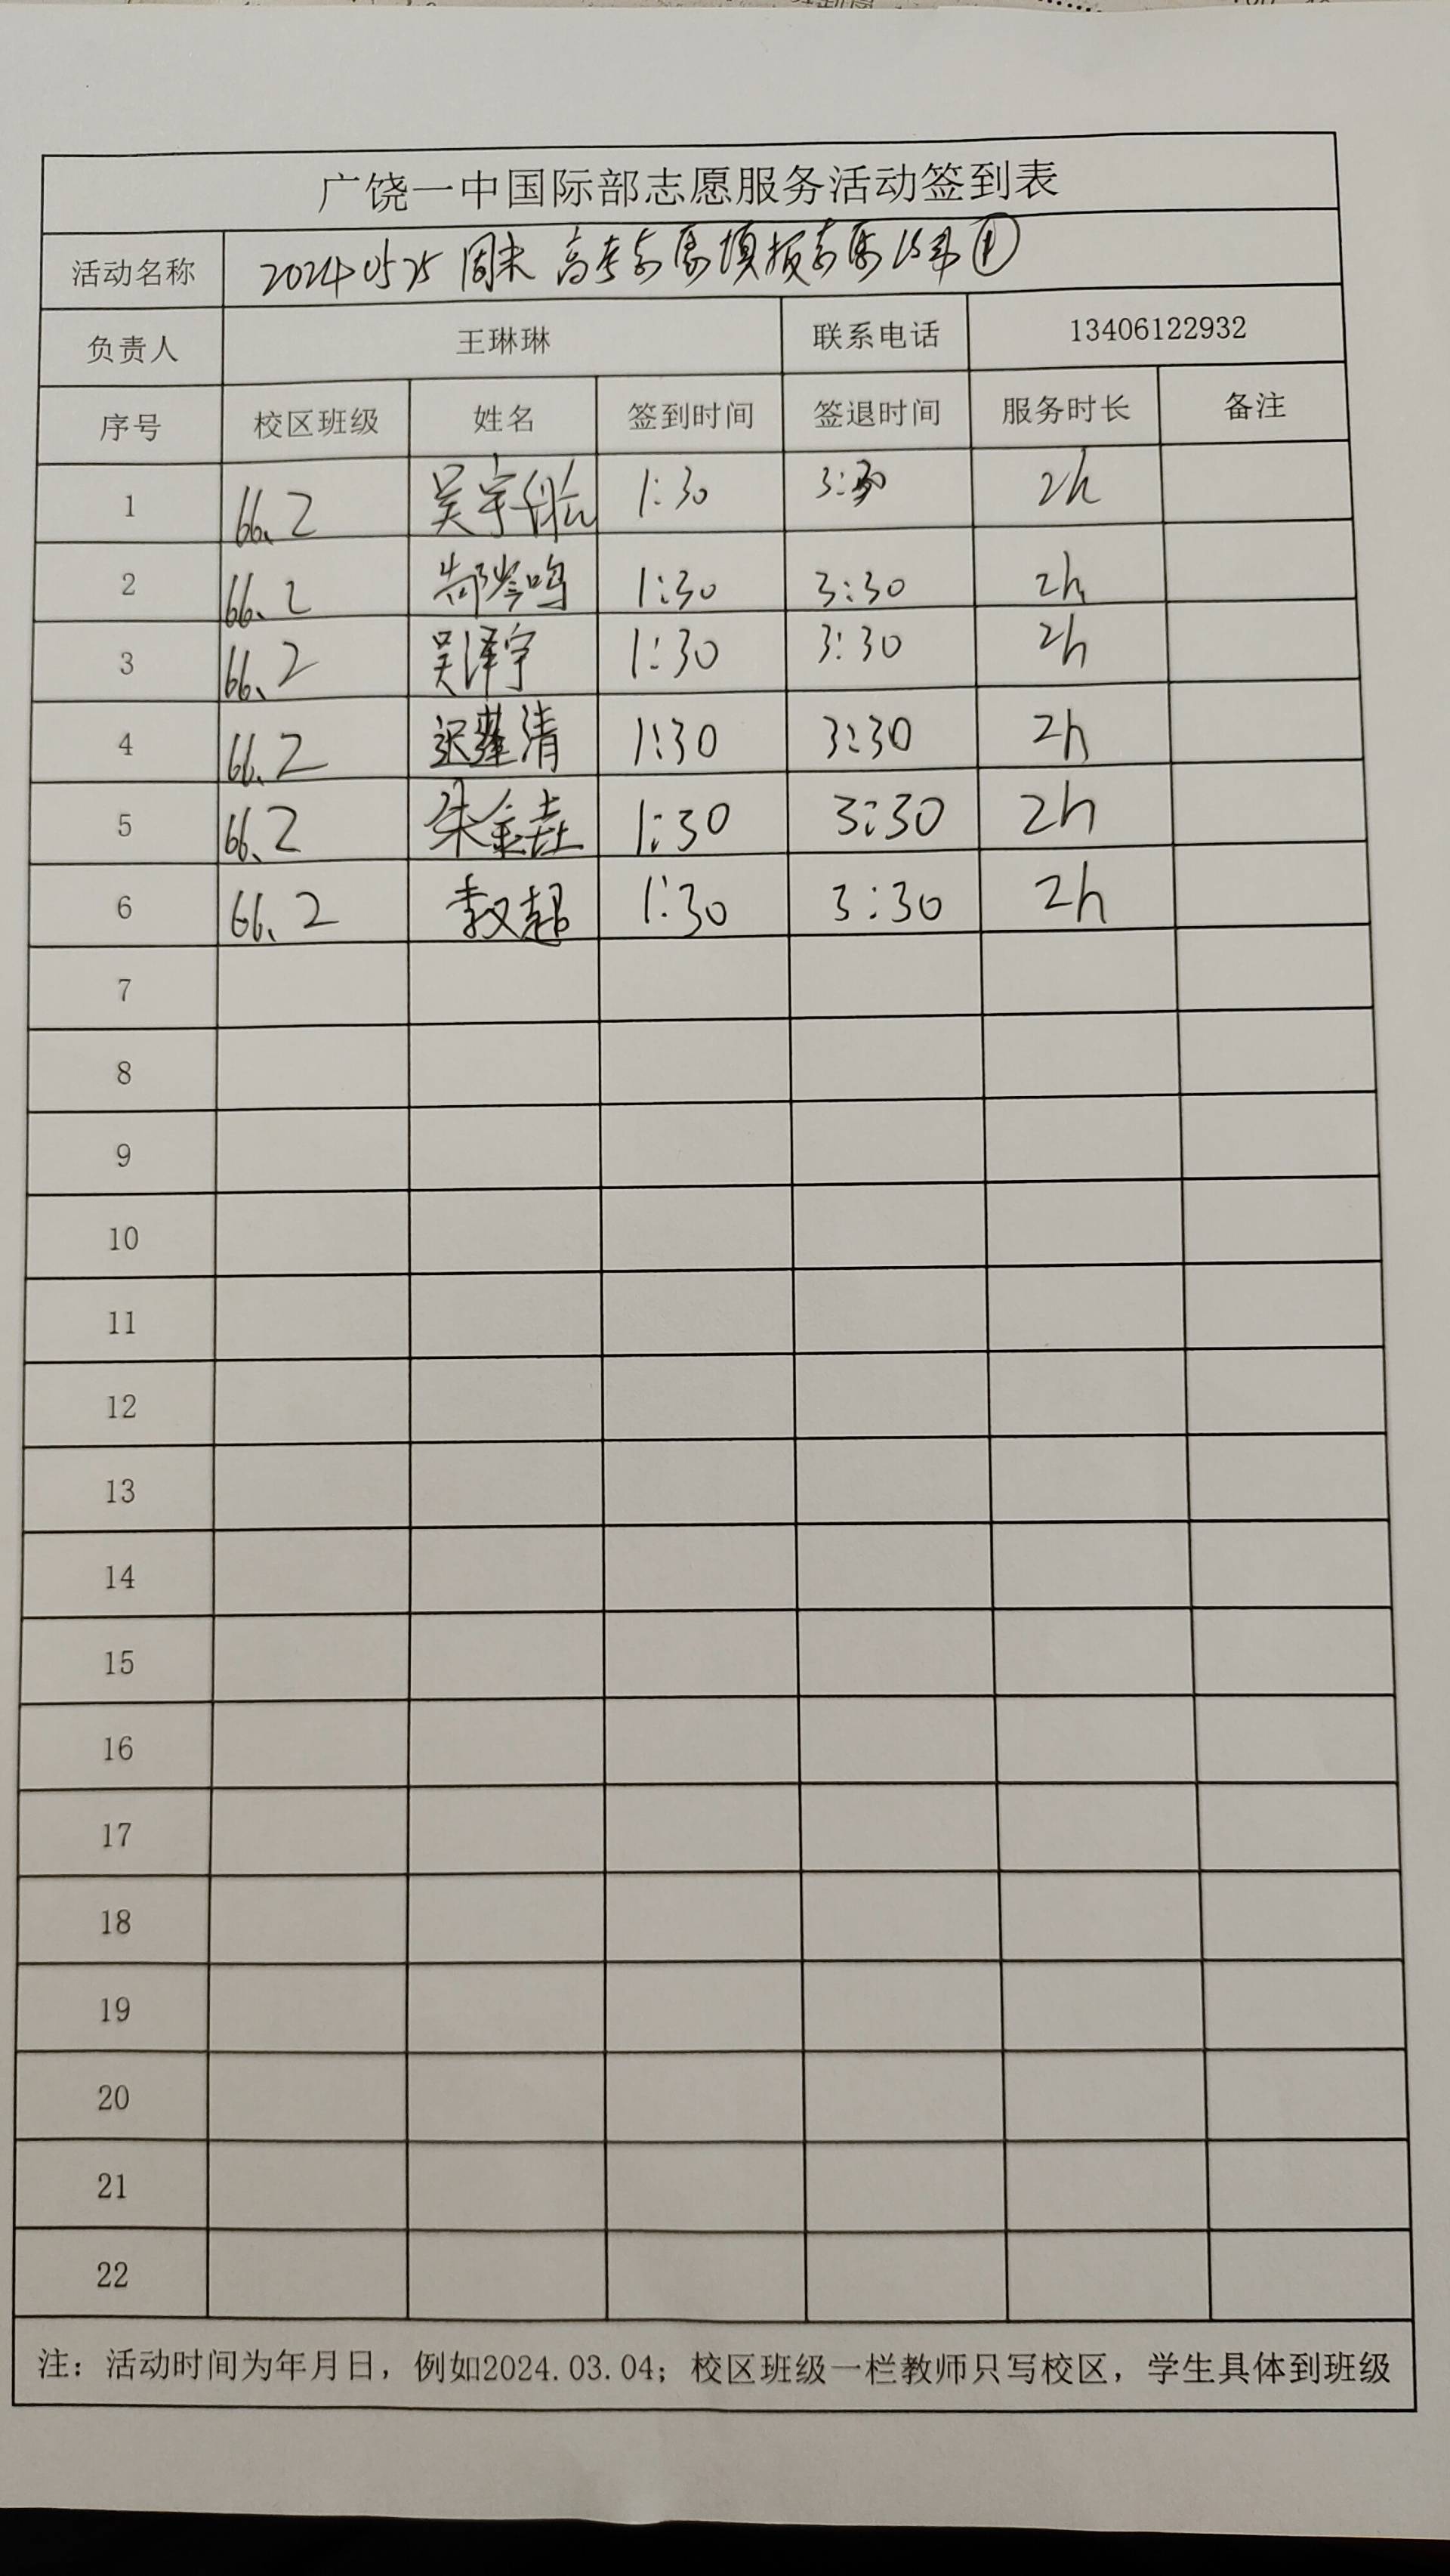 广饶一中国际部志愿服务活动签到表
活动名称 20240525 周末 高考志愿填报志愿
负责人 王琳琳 联系电话 13406122932
序号 校区班级 姓名 签到时间 签退时间 服务时长 备注
1 66.2 吴宇 1:30 3:30 2h
2 66.2 郝岑鸣 1:30 3:30 2h
3 66.2 吴泽宇 1:30 3:30 2h
4 66.2 清 1:30 3:30 2h
5 66.2 朱金垚 1:30 3:30 2h
6 66.2 李汉超 1:30 3:30 2h
7
8
9
10
11
12
13
14
15
16
17
18
19
20
21
22
注：活动时间为年月日，例如2024.03.04；校区班级一栏教师只写校区，学生具体到班级